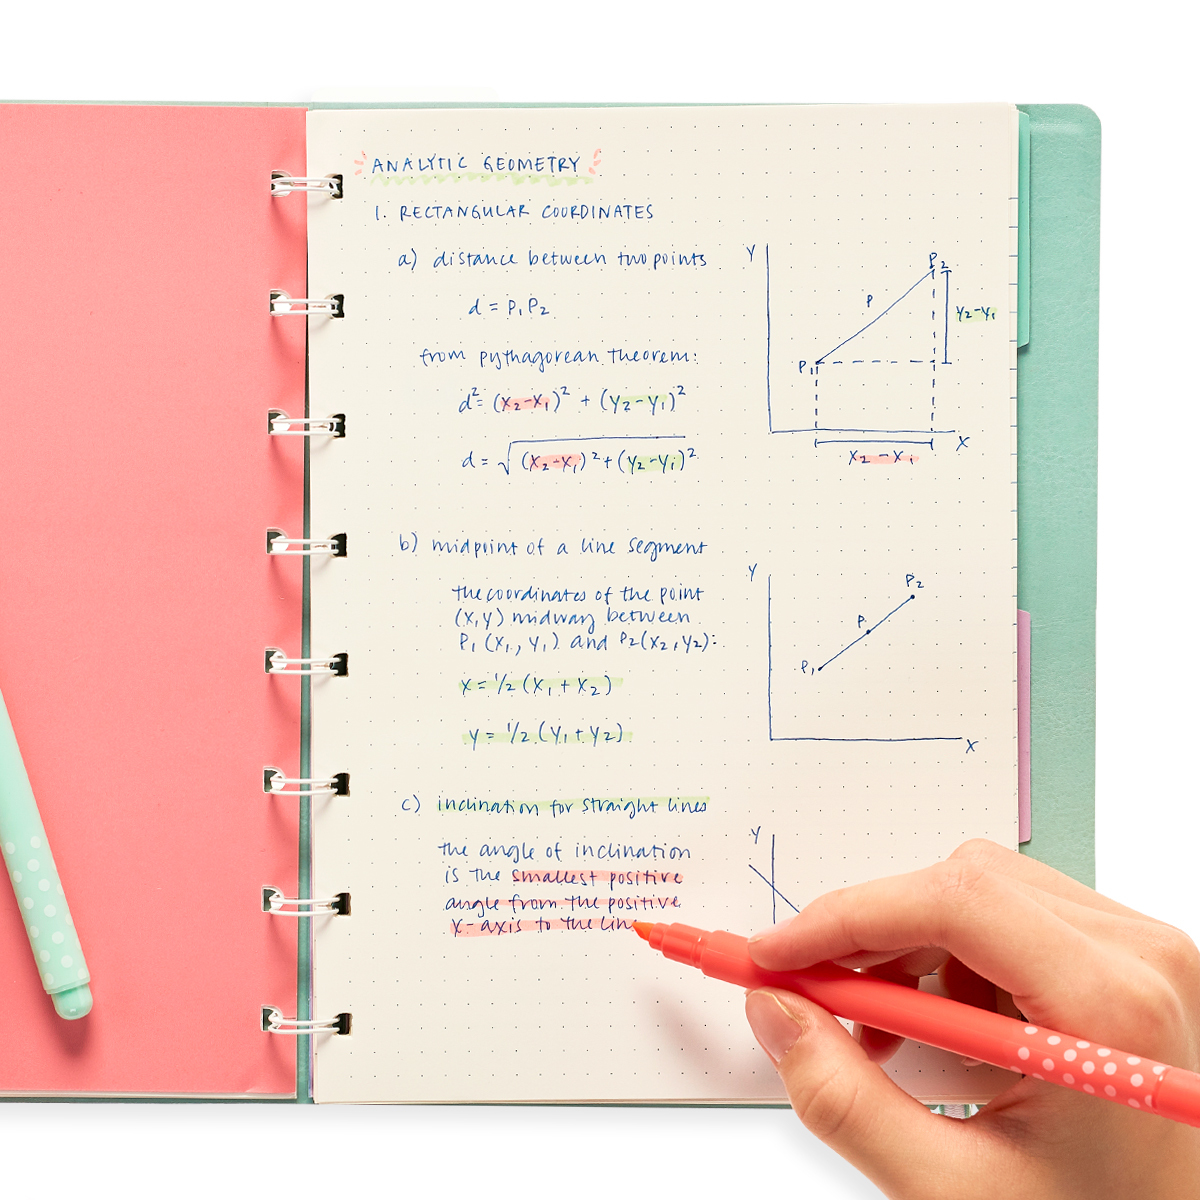 ANALYTIC GEOMETRY
1. RECTANGULAR COORDINATES
a) distance between two points
d = P₁P₂
from pythagorean theorem:
d² = (x₂-x₁)² + (y₂-y₁)²
d = √(x₂-x₁)² + (y₂-y₁)²
Y
P₂
P
P₁
y₂-y₁
X
x₂-x₁
b) midpoint of a line segment
the coordinates of the point
(x,y) midway between
P₁(x₁, y₁) and P₂(x₂, y₂):
x = 1/2 (x₁ + x₂)
y = 1/2 (y₁ + y₂)
Y
P₂
P
P₁
X
c) inclination for straight lines
the angle of inclination
is the smallest positive
angle from the positive
x-axis to the lin
Y